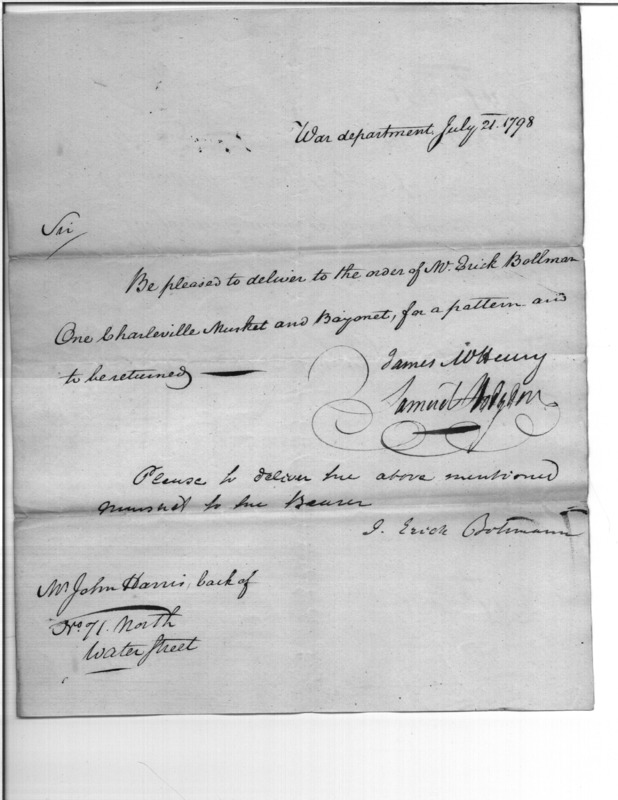 War department July 21. 1798
Sir
Be pleased to deliver to the order of Mr. Erick Bollman
One Charleville Musket and Bayonet, for a pattern and
to be returned
James McHenry
Samuel Hodgdon
Please to deliver the above mentioned
musket to the Bearer
J. Erick Bollmann
Mr John Harris, back of
No 71. North
Water Street